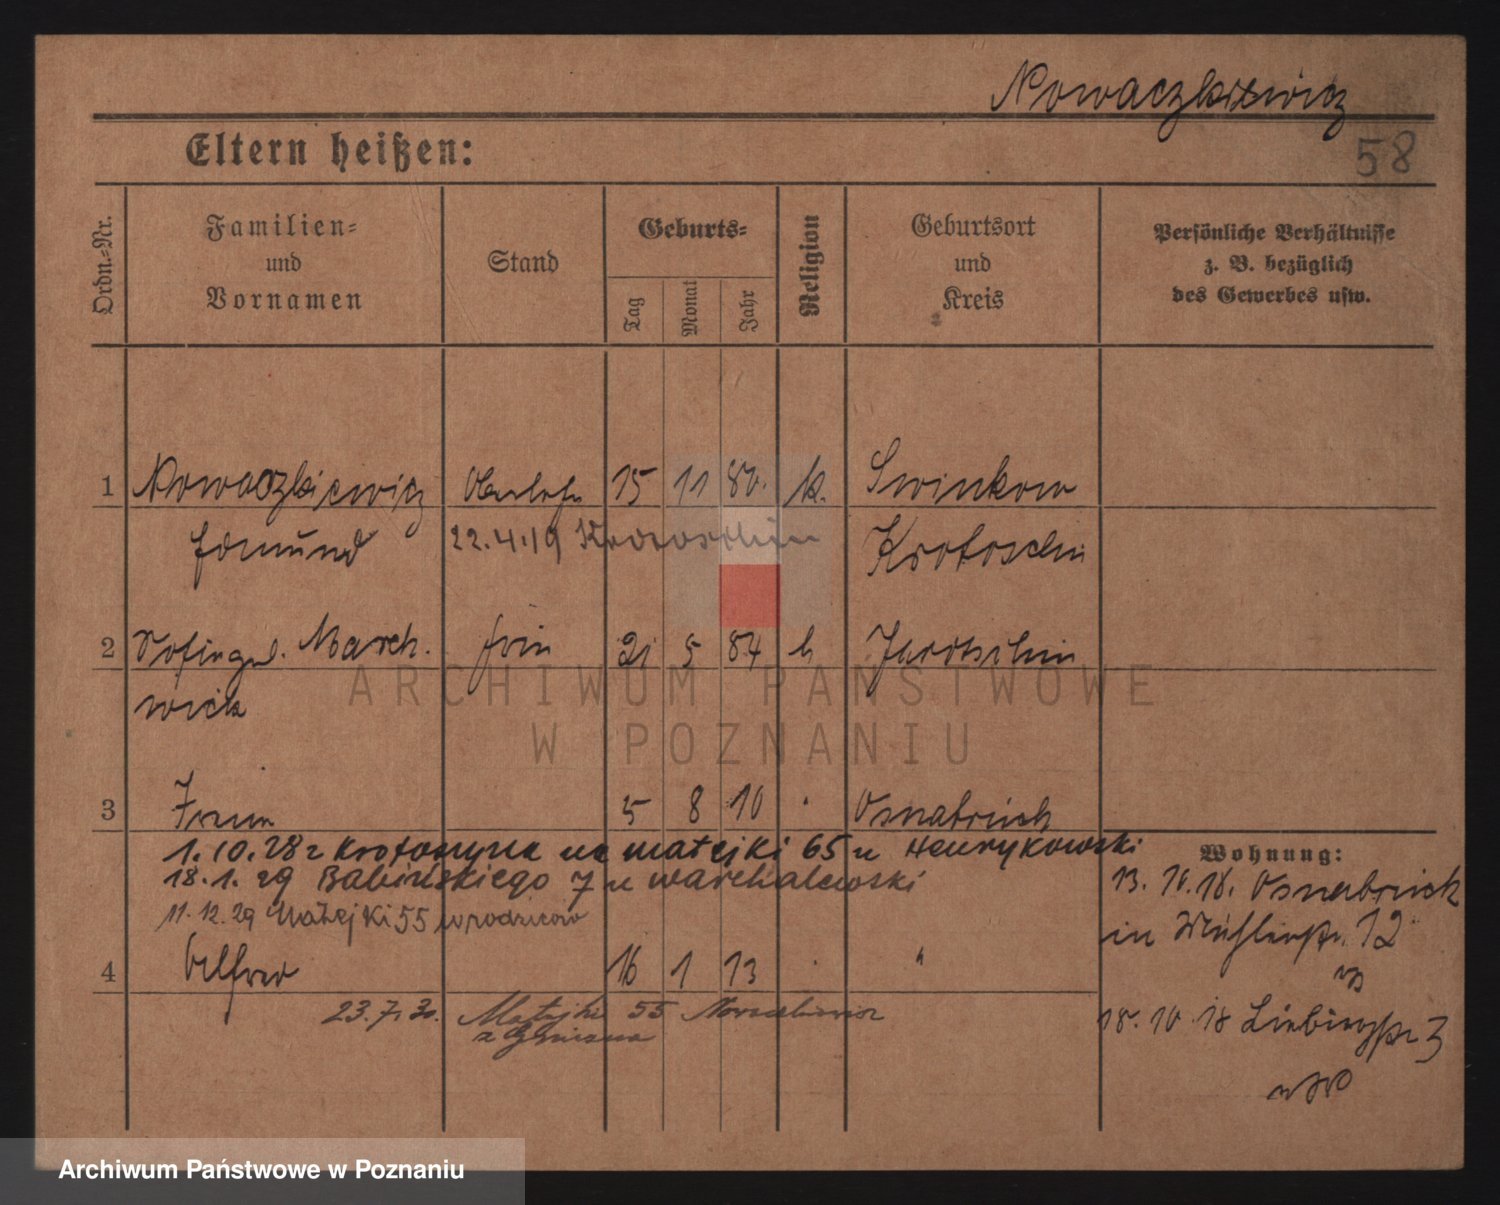 Nowaczkiewicz
58
Eltern heißen:
Ordn.-Nr.
Familien-
und
Vornamen
Stand
Geburts-
Tag
Monat
Jahr
Religion
Geburtsort
und
Kreis
Persönliche Verhältnisse
z. B. bezüglich
des Gewerbes usw.
1 Nowaczkiewicz 15 11 80. k. Swinkow
Edmund 22.4.19 Krotoschin Krotoschin
2 March. 21 5 84 k Jarotschin
wicka
3 Irene 5 8 10 Osnabrück
1.10.28 z Krotoszyna Matejki 65 u Henrykowski
18.1.29 Babińskiego 7 u Warchalewski
11.12.29 Matejki 55 u rodziców
4 Alfred 16 1 13 "
23.7.30. Matejki 55 Nowaczkiewicz
z Gniezna
Wohnung:
13. 10. 18. Osnabrück
in 12
18. 10 18 3
ARCHIWUM PAŃSTWOWE
W POZNANIU
Archiwum Państwowe w Poznaniu